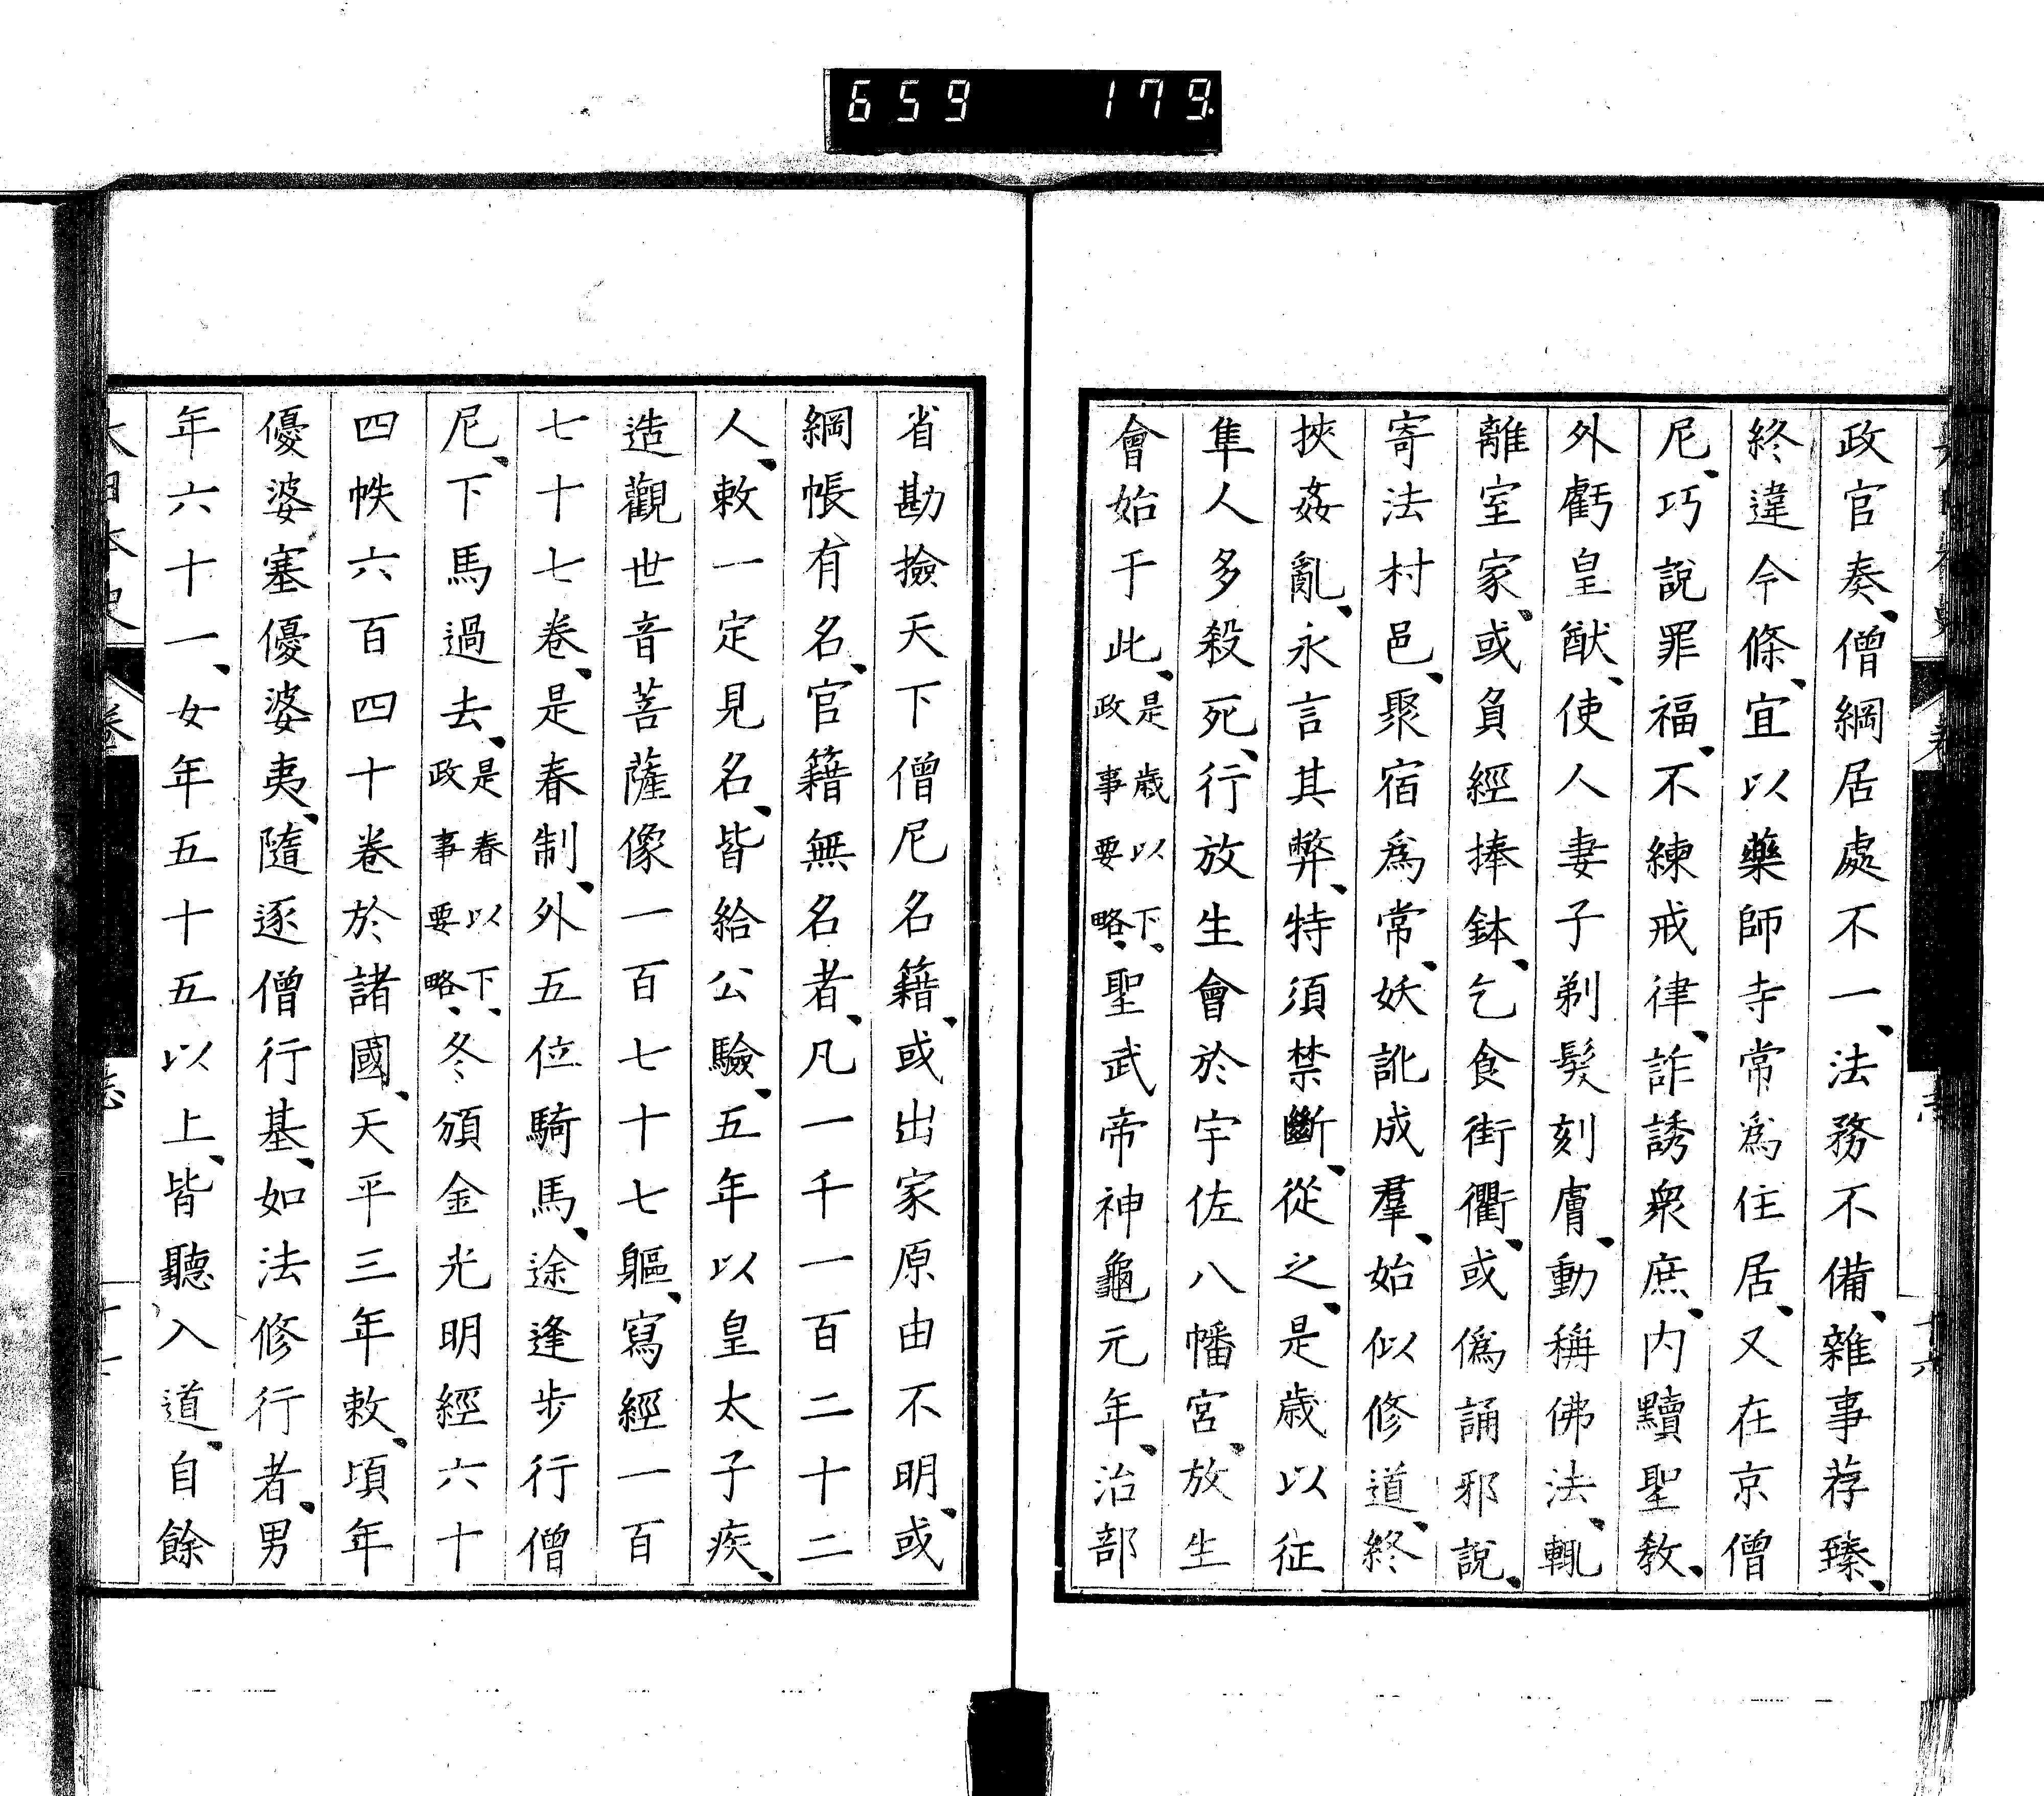 659 179
政官奏、僧綱居處不一、法務不備、雜事荐臻、
終違令條、宜以藥師寺常爲住居、又在京僧
尼、巧說罪福、不練戒律、詐誘衆庶、内黷聖教、
外虧皇猷、使人妻子剃髮刻膚、動稱佛法、輒
離室家、或負經捧鉢、乞食街衢、或僞誦邪說、
寄法村邑、聚宿爲常、妖訛成羣、始似修道、終
挾姦亂、永言其弊、特須禁斷、從之、是歳以征
隼人多殺死、行放生會於宇佐八幡宮、放生
會始于此、是歳以下、政事要略、聖武帝神龜元年、治部
十六
省勘撿天下僧尼名籍、或出家原由不明、或
綱帳有名、官籍無名者、凡一千一百二十二
人、敕一定見名、皆給公驗、五年以皇太子疾、
造觀世音菩薩像一百七十七軀、寫經一百
七十七卷、是春制、外五位騎馬、途逢步行僧
尼、下馬過去、是春以下、政事要略、冬頒金光明經六十
四帙六百四十卷於諸國、天平三年敕、頃年
優婆塞優婆夷、隨逐僧行基、如法修行者、男
年六十一、女年五十五以上、皆聽入道、自餘
大日本史 卷 志